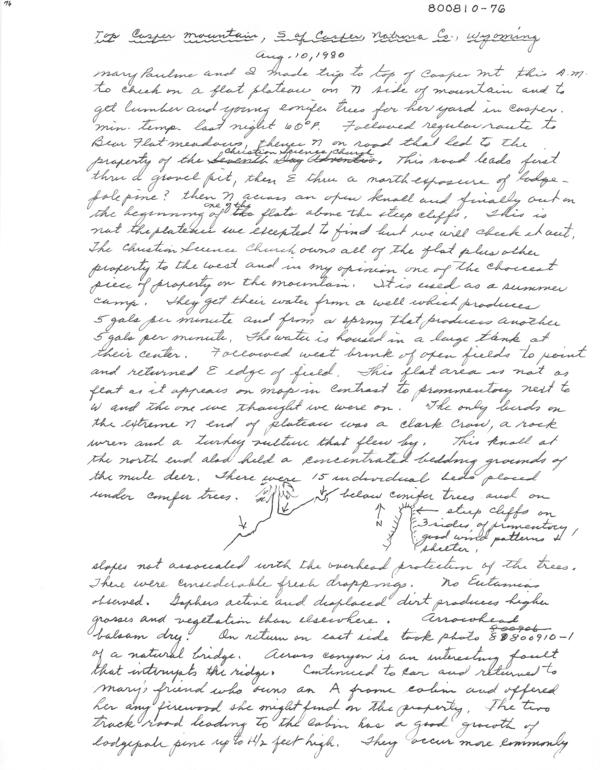 76
800810-76
Top Casper Mountain, S of Casper, Natrona Co., Wyoming
Aug. 10, 1980
Mary Pauline and I made trip to top of Casper Mt this A.M.
to check on a flat plateau on N side of mountain and to
get lumber and young conifer trees for her yard in Casper.
Min. temp. last night 60°F. Followed regular route to
Bear Flat meadows, thence N on road that led to the
Christian Science Church
property of the Seventh Day Adventist. This road leads first
thru a gravel pit, then E thru a north exposure of lodge-
pole pine? then N across an open knoll and finally out on
one of the
the beginning of the flats above the steep cliffs. This is
not the plateau we excepted to find but we will check it out.
The Christian Science Church owns all of the flat plus other
property to the west and in my opinion one of the choicest
piece of property on the mountain. It is used as a summer
camp. They get their water from a well which produces
5 gals per minute and from a spring that produces another
5 gals per minute. The water is housed in a large tank at
their center. Followed west brink of open fields to point
and returned E edge of field. This flat area is not as
flat as it appears on map in contrast to prommentory next to
W and the one we thought we were on. The only birds on
the extreme N end of plateau was a clark crow, a rock
wren and a turkey vulture that flew by. This knoll at
the north end also held a concentrated bedding grounds of
the mule deer. There were 15 individual beds placed
under conifer trees. below conifer trees and on
N
steep cliffs on
3 sides of primentory,
good wind patterns &
shelter.
slopes not associated with the overhead protection of the trees.
There were considerable fresh droppings. No Eutamias
observed. Gophers active and displaced dirt produces higher
grasses and vegetation than elsewhere. Arrowhead
balsam dry. On return on east side took photo 800910-1
of a natural bridge. Across canyon is an interesting fault
that interrupts the ridge. Continued to car and returned to
Mary's friend who owns an A frame cabin and offered
her any firewood she might find on the property. The two
track road leading to the cabin has a good growth of
lodgepole pine up to 1½ feet high. They occur more commonly